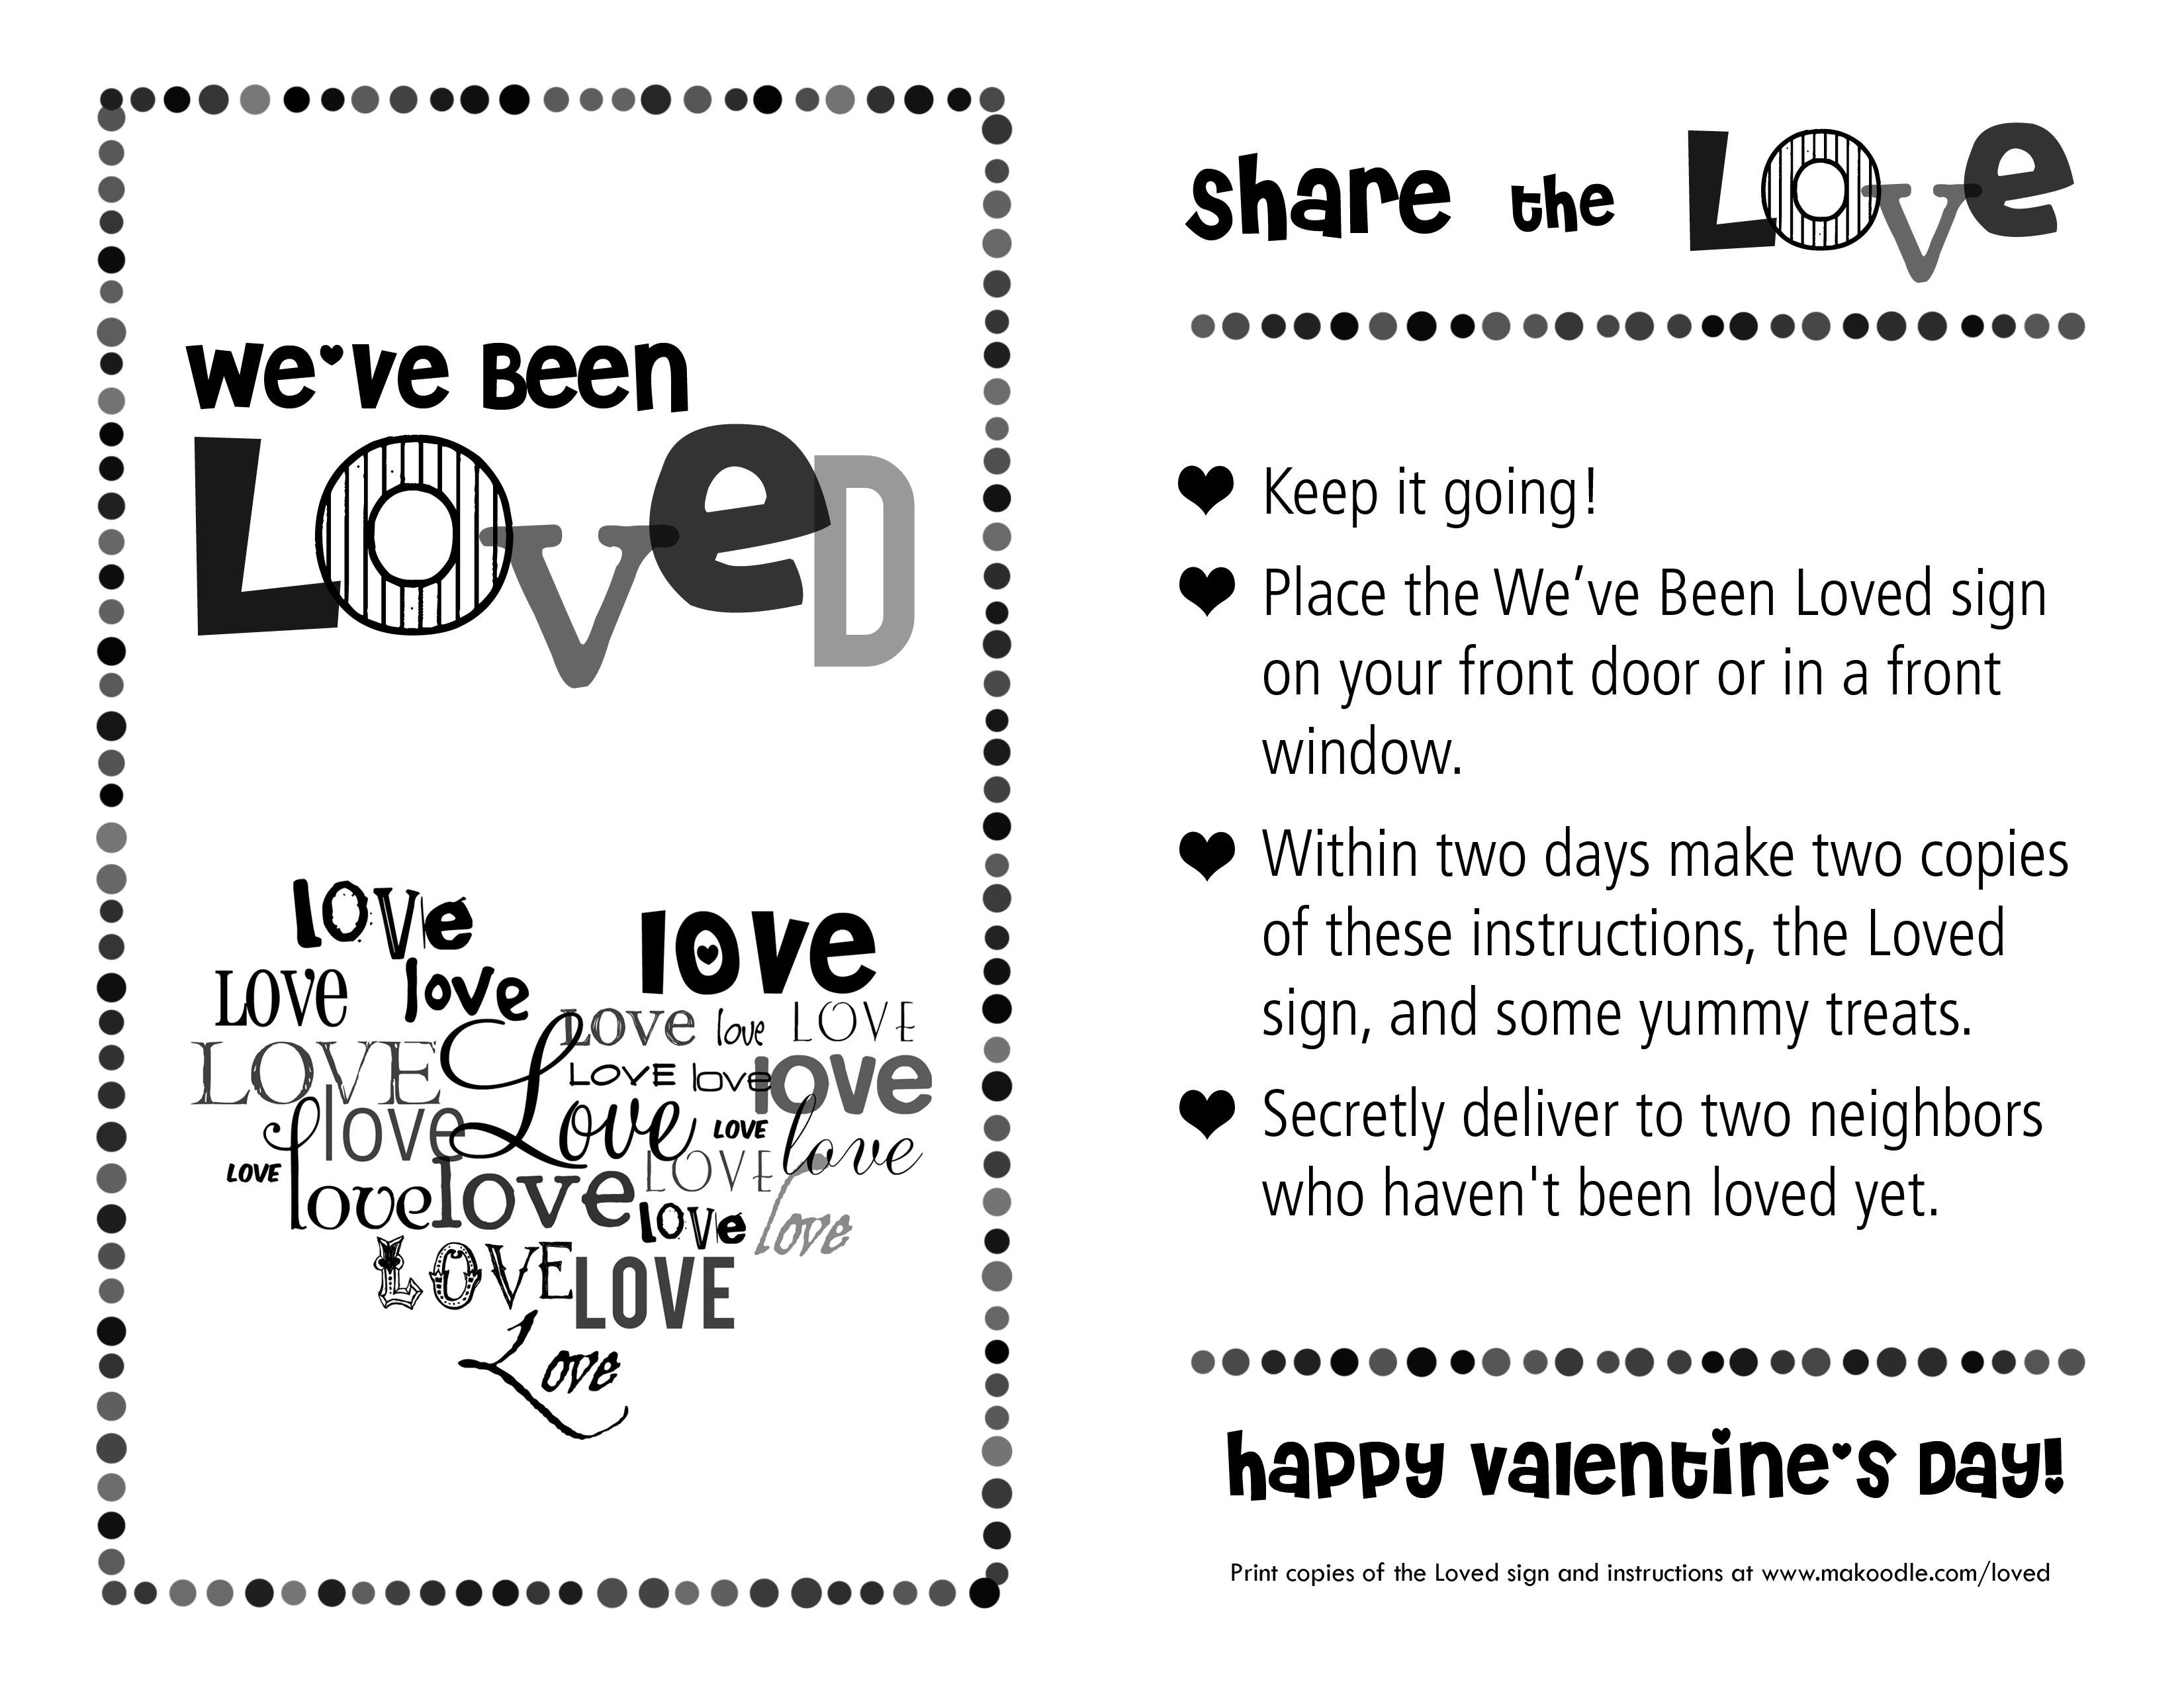 We've Been
Loved
love
love
Love love
Love love LOVE
LOVE Love
LOVE love love
love
LOVE love
LOVE
LOVE
love love
love love
LOVE LOVE
Love
share the Love
Keep it going!
Place the We’ve Been Loved sign
on your front door or in a front
window.
Within two days make two copies
of these instructions, the Loved
sign, and some yummy treats.
Secretly deliver to two neighbors
who haven't been loved yet.
happy valentine's Day!
Print copies of the Loved sign and instructions at www.makoodle.com/loved